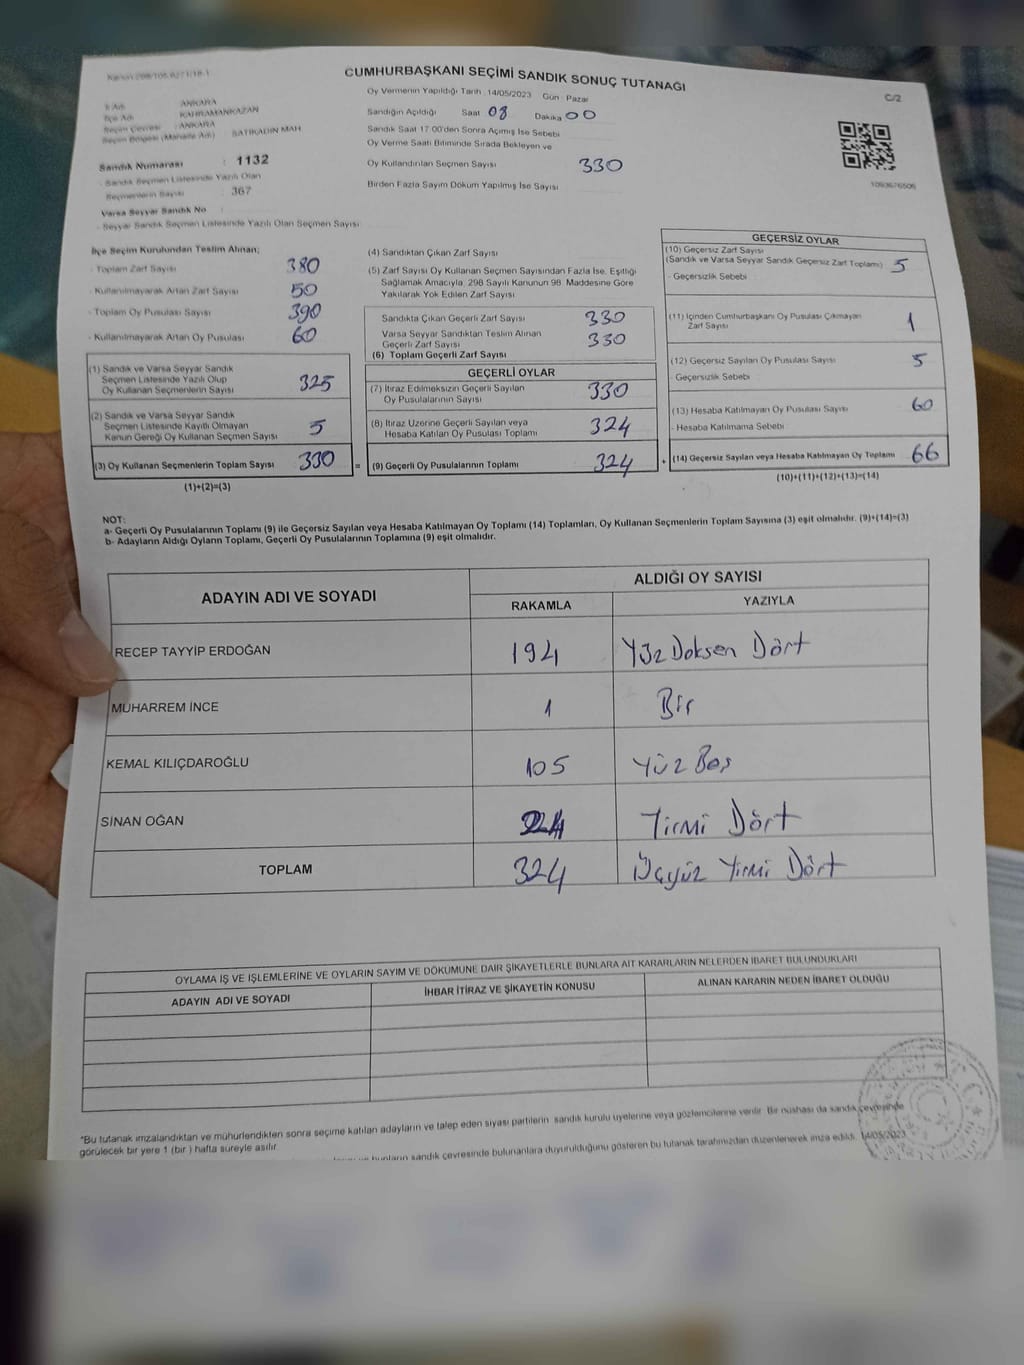 CUMHURBAŞKANI SEÇİMİ SANDIK SONUÇ TUTANAĞI
C/2
Oy Vermenin Yapıldığı Tarih : 14/05/2023 Gün : Pazar
İl Adı : ANKARA
İlçe Adı : KAHRAMANKAZAN
Seçim Çevresi : ANKARA
Seçim Bölgesi (Mahalle Adı) : SATIKADIN MAH
Sandığın Açıldığı Saat 08 Dakika 00
Sandık Saat 17:00'den Sonra Açılmış İse Sebebi
Oy Verme Saati Bitiminde Sırada Bekleyen ve
Oy Kullandırılan Seçmen Sayısı 330
Birden Fazla Sayım Döküm Yapılmış İse Sayısı
1093676505
Sandık Numarası : 1132
- Sandık Seçmen Listesinde Yazılı Olan
Seçmenlerin Sayısı : 367
Varsa Seyyar Sandık No :
- Seyyar Sandık Seçmen Listesinde Yazılı Olan Seçmen Sayısı :
İlçe Seçim Kurulundan Teslim Alınan;
- Toplam Zarf Sayısı 380
- Kullanılmayarak Artan Zarf Sayısı 50
- Toplam Oy Pusulası Sayısı 390
- Kullanılmayarak Artan Oy Pusulası 60
(1) Sandık ve Varsa Seyyar Sandık
Seçmen Listesinde Yazılı Olup
Oy Kullanan Seçmenlerin Sayısı 325
(2) Sandık ve Varsa Seyyar Sandık
Seçmen Listesinde Kayıtlı Olmayan
Kanun Gereği Oy Kullanan Seçmen Sayısı 5
(3) Oy Kullanan Seçmenlerin Toplam Sayısı 330 =
(1)+(2)=(3)
(4) Sandıktan Çıkan Zarf Sayısı
(5) Zarf Sayısı Oy Kullanan Seçmen Sayısından Fazla İse, Eşitliği
Sağlamak Amacıyla, 298 Sayılı Kanunun 98. Maddesine Göre
Yakılarak Yok Edilen Zarf Sayısı
Sandıkta Çıkan Geçerli Zarf Sayısı 330
Varsa Seyyar Sandıktan Teslim Alınan
Geçerli Zarf Sayısı 330
(6) Toplam Geçerli Zarf Sayısı
GEÇERLİ OYLAR
(7) İtiraz Edilmeksizin Geçerli Sayılan
Oy Pusulalarının Sayısı 330
(8) İtiraz Üzerine Geçerli Sayılan veya
Hesaba Katılan Oy Pusulası Toplamı 324
(9) Geçerli Oy Pusulalarının Toplamı 324 +
GEÇERSİZ OYLAR
(10) Geçersiz Zarf Sayısı
(Sandık ve Varsa Seyyar Sandık Geçersiz Zarf Toplamı) 5
- Geçersizlik Sebebi :
(11) İçinden Cumhurbaşkanı Oy Pusulası Çıkmayan
Zarf Sayısı 1
(12) Geçersiz Sayılan Oy Pusulası Sayısı 5
- Geçersizlik Sebebi :
(13) Hesaba Katılmayan Oy Pusulası Sayısı 60
- Hesaba Katılmama Sebebi :
(14) Geçersiz Sayılan veya Hesaba Katılmayan Oy Toplamı 66
(10)+(11)+(12)+(13)=(14)
NOT:
a- Geçerli Oy Pusulalarının Toplamı (9) ile Geçersiz Sayılan veya Hesaba Katılmayan Oy Toplamı (14) Toplamları, Oy Kullanan Seçmenlerin Toplam Sayısına (3) eşit olmalıdır. (9)+(14)=(3)
b- Adayların Aldığı Oyların Toplamı, Geçerli Oy Pusulalarının Toplamına (9) eşit olmalıdır.
ADAYIN ADI VE SOYADI
ALDIĞI OY SAYISI
RAKAMLA YAZIYLA
RECEP TAYYİP ERDOĞAN 194 Yüz Doksan Dört
MUHARREM İNCE 1 Bir
KEMAL KILIÇDAROĞLU 105 Yüz Beş
SİNAN OĞAN 24 Yirmi Dört
TOPLAM 324 Üçyüz Yirmi Dört
OYLAMA İŞ VE İŞLEMLERİNE VE OYLARIN SAYIM VE DÖKÜMÜNE DAİR ŞİKAYETLERLE BUNLARA AİT KARARLARIN NELERDEN İBARET BULUNDUKLARI
ADAYIN ADI VE SOYADI İHBAR İTİRAZ VE ŞİKAYETİN KONUSU ALINAN KARARIN NEDEN İBARET OLDUĞU
*Bu tutanak imzalandıktan ve mühürlendikten sonra seçime katılan adayların ve talep eden siyasi partilerin sandık kurulu üyelerine veya gözlemcilerine verilir. Bir nüshası da sandık çevresinde
görülecek bir yere 1 (bir ) hafta süreyle asılır.
bunların sandık çevresinde bulunanlara duyurulduğunu gösteren bu tutanak tarafımızdan düzenlenerek imza edildi. 14/05/2023